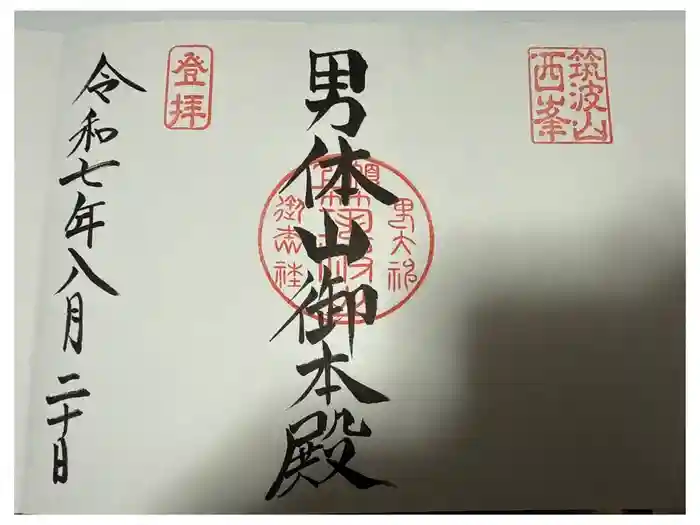 筑波山
西峯
男体山御本殿
登拝
令和七年八月二十日